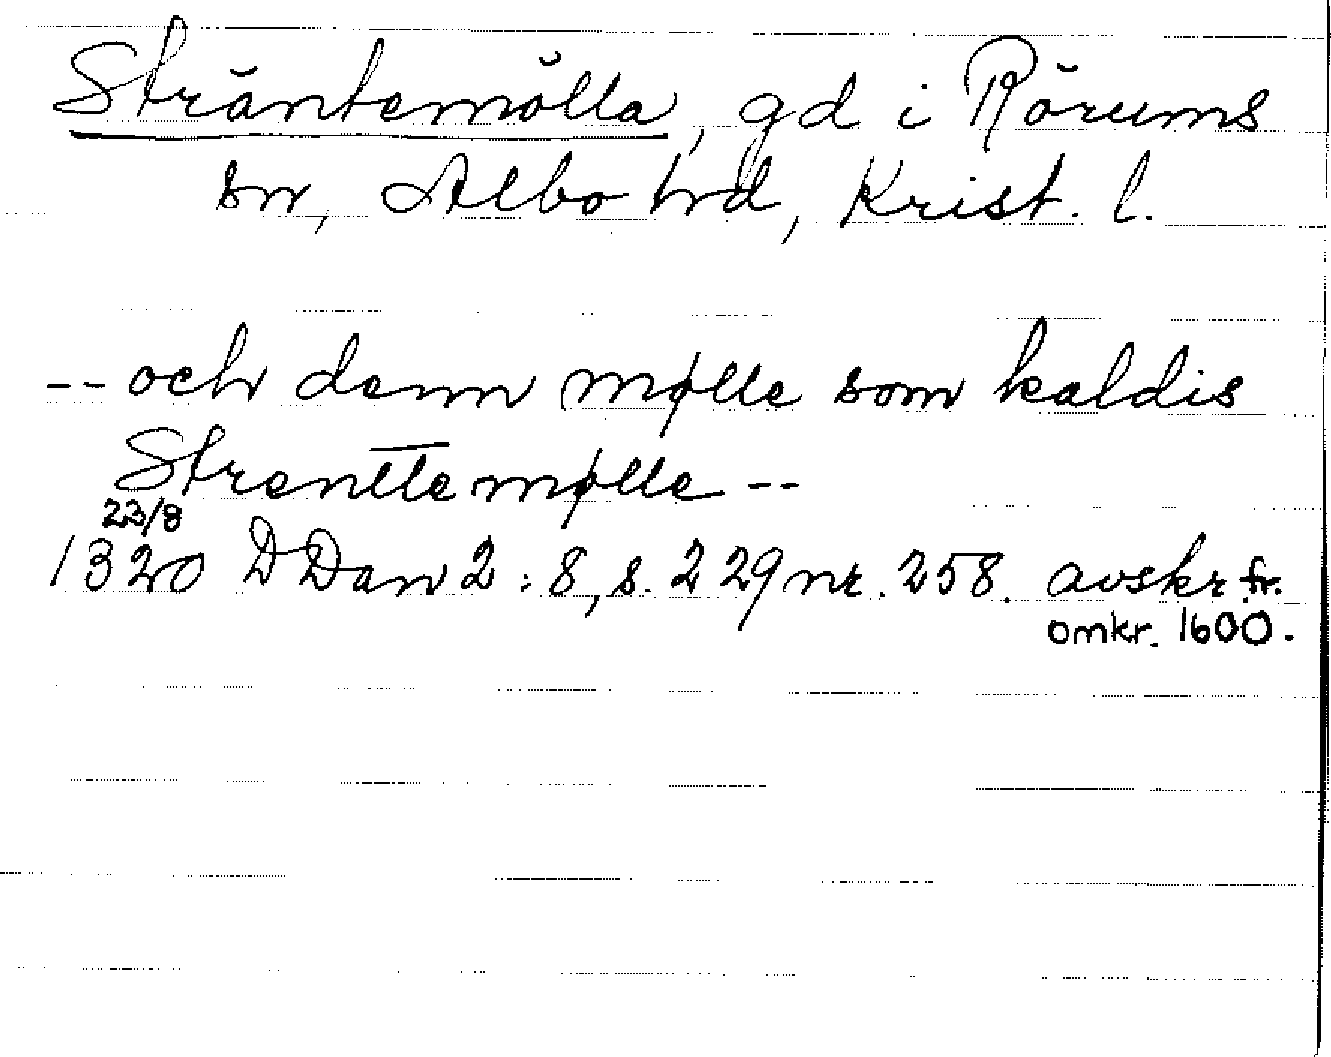 Sträntemölla, gd i Rörums
sn, Albo hrd, Krist. l.
-- och denn mølle som kaldis
Strenttemølle --
23/8
1320 DDan 2:8, s. 229 nr. 258. avskr fr.
omkr. 1600.